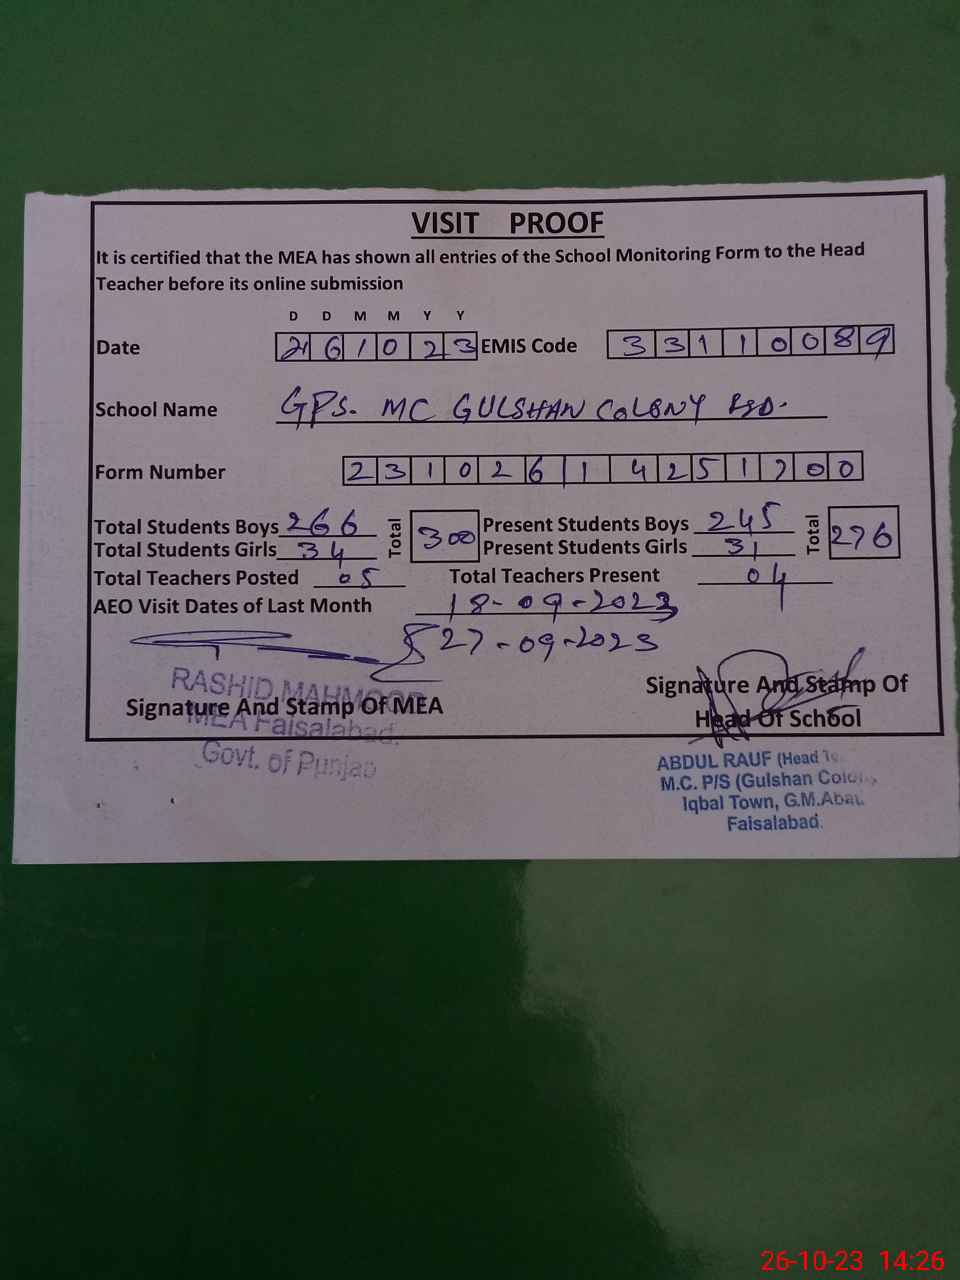 VISIT PROOF
It is certified that the MEA has shown all entries of the School Monitoring Form to the Head
Teacher before its online submission
D D M M Y Y
Date 261023 EMIS Code 33110089
School Name GPS. MC GULSHAN COLONY FSD.
Form Number 23102614251700
Total Students Boys 266 Total 300 Present Students Boys 245 Total 276
Total Students Girls 34 Present Students Girls 31
Total Teachers Posted 05 Total Teachers Present 04
AEO Visit Dates of Last Month 18-09-2023
& 27-09-2023
RASHID MAHMOOD
Signature And Stamp Of MEA
MEA Faisalabad.
Govt. of Punjab
Signature And Stamp Of
Head Of School
ABDUL RAUF (Head
M.C. P/S (Gulshan Colony
Iqbal Town, G.M.Abad.
Faisalabad.
26-10-23 14:26